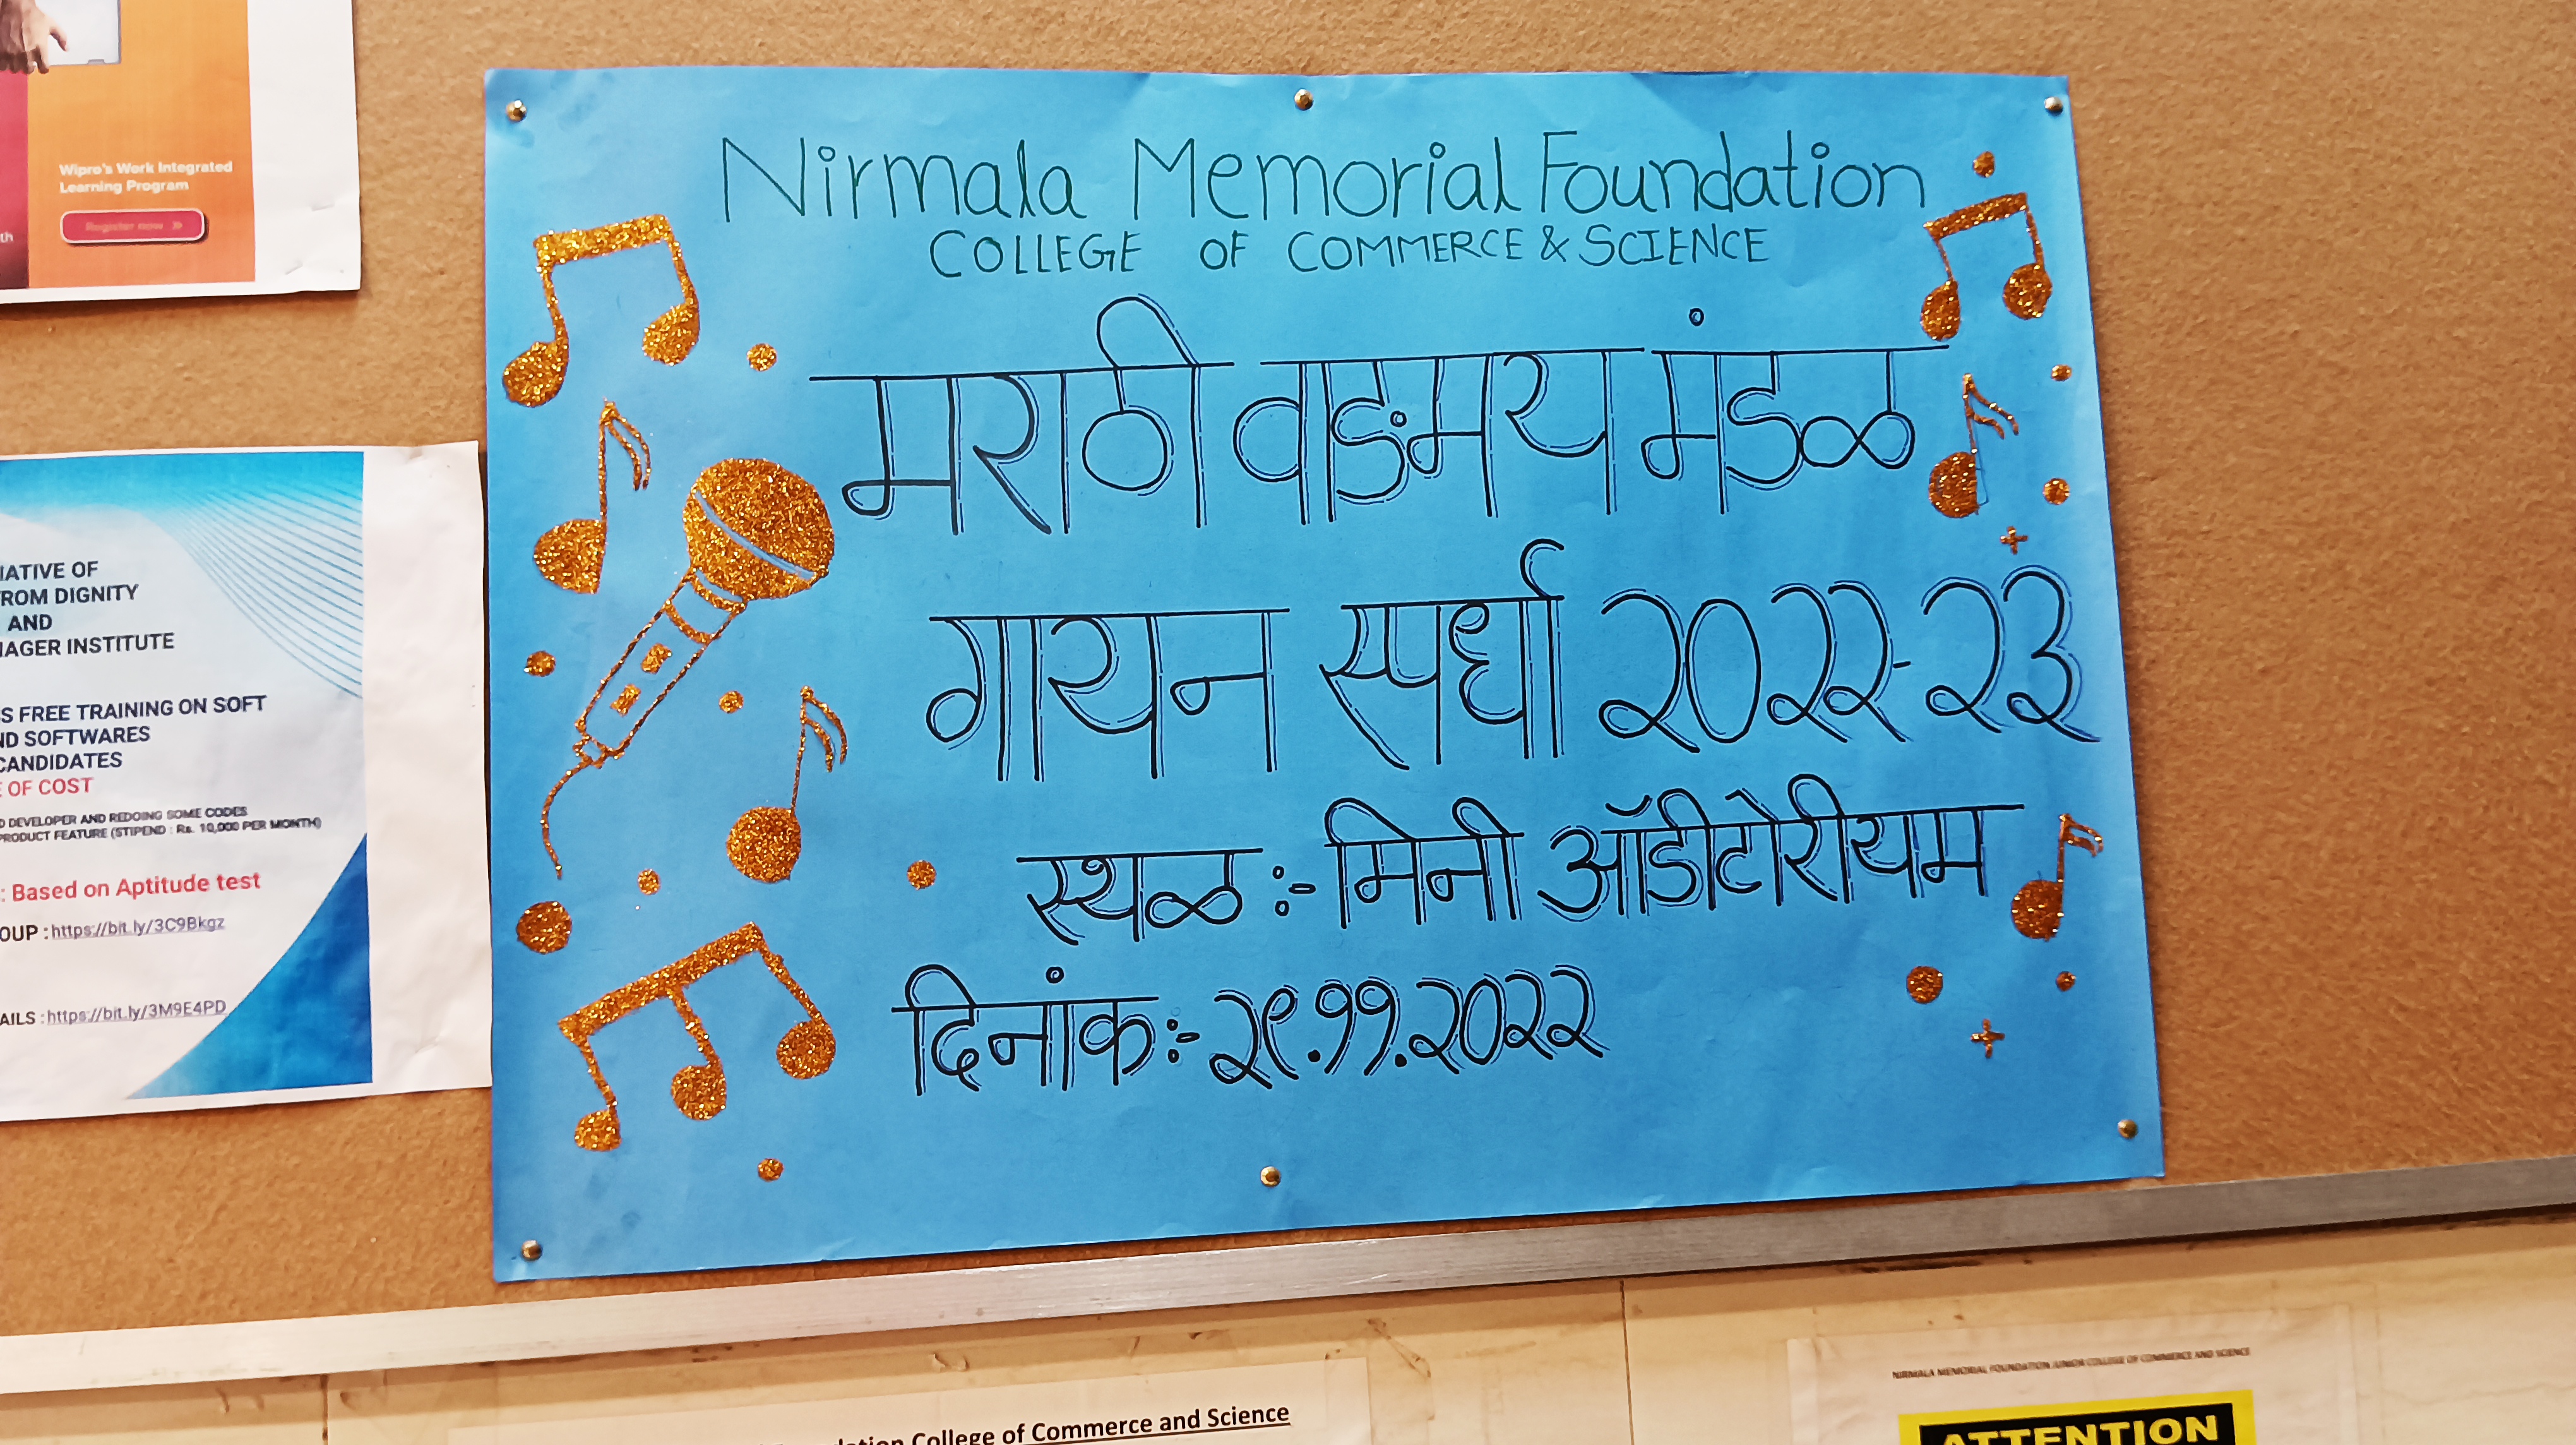 Wipro's Work Integrated
Learning Program
Register now »
th
IATIVE OF
ROM DIGNITY
AND
NAGER INSTITUTE
S FREE TRAINING ON SOFT
ND SOFTWARES
CANDIDATES
OF COST
D DEVELOPER AND REDOING SOME CODES
PRODUCT FEATURE (STIPEND : Rs. 10,000 PER MONTH)
: Based on Aptitude test
OUP : https://bit.ly/3C9Bkgz
AILS : https://bit.ly/3M9E4PD
Nirmala Memorial Foundation
COLLEGE OF COMMERCE & SCIENCE
मराठी वाङमय मंडळ
गायन स्पर्धा २०२२-२३
स्थळ :- मिनी ऑडीटोरीयम
दिनांक :- २९.११.२०२२
College of Commerce and Science
NIRMALA MEMORIAL FOUNDATION JUNIOR COLLEGE OF COMMERCE AND SCIENCE
ATTENTION